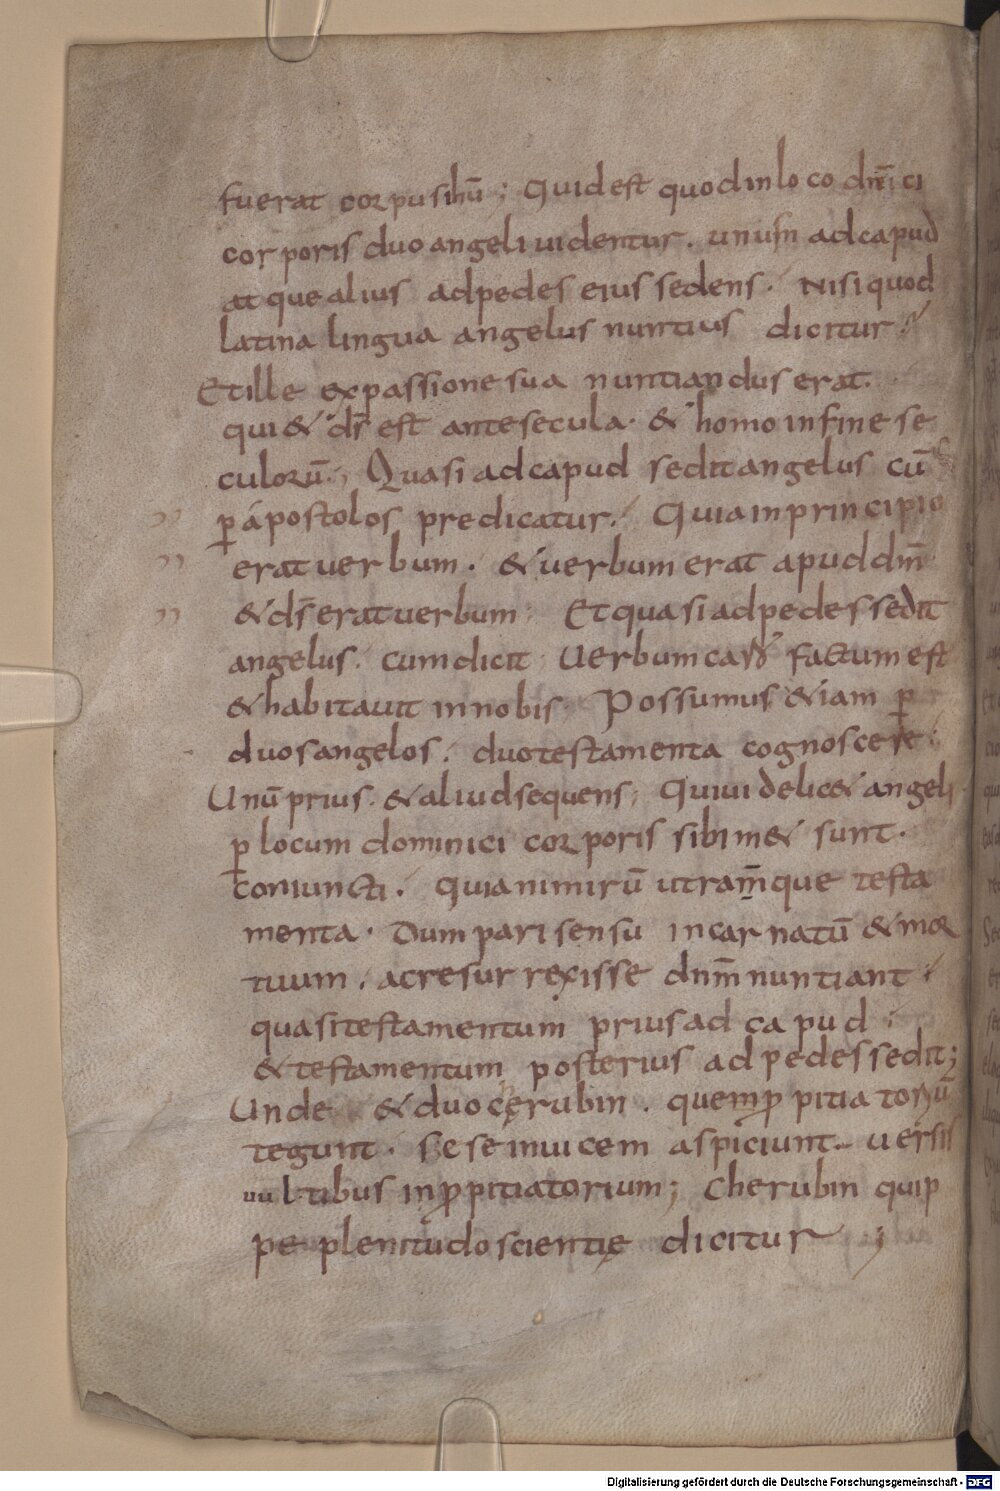 fuerat corpus ihū; Quid est quod in loco dn̄ici
corporis duo angeli uidentur. unus in ad capud
atque alius ad pedes eius sedens. Nisi quod
latina lingua angelus nuntius dicitur.
Et ille ex passione sua nuntiandus erat.
qui & ds̄ est ante secula. & homo in fine se
culorū. Quasi ad capud sedit angelus cū
ꝑ apostolos predicatur. Quia in principio
erat uerbum. & uerbum erat apud dm̄
& ds̄ erat uerbum. Et quasi ad pedes sedit
angelus. cum dicit. Uerbum caro factum est
& habitauit in nobis. Possumus &iam ꝑ
duos angelos. duo testamenta cognoscere.
Unū prius. & aliud sequens. Qui uidelic& angeli
ꝑ locum dominici corporis sibim& sunt.
coniuncti. Quia nimirū utram̄que testa
menta. Dum pari sensu incarnatū & mor
tuum. ac resurrexisse dnm̄ nuntiant.
quasi testamentum prius ad capud.
& testamentum posterius ad pedes sedit;
Unde & duo cherubin. que ꝓpitiatoriū
tegunt. Se se inuicem aspiciunt. uersis
uultibus in ꝓpitiatorium; Cherubin quip
pe plenitudo scientię dicitur;
Digitalisierung gefördert durch die Deutsche Forschungsgemeinschaft - DFG